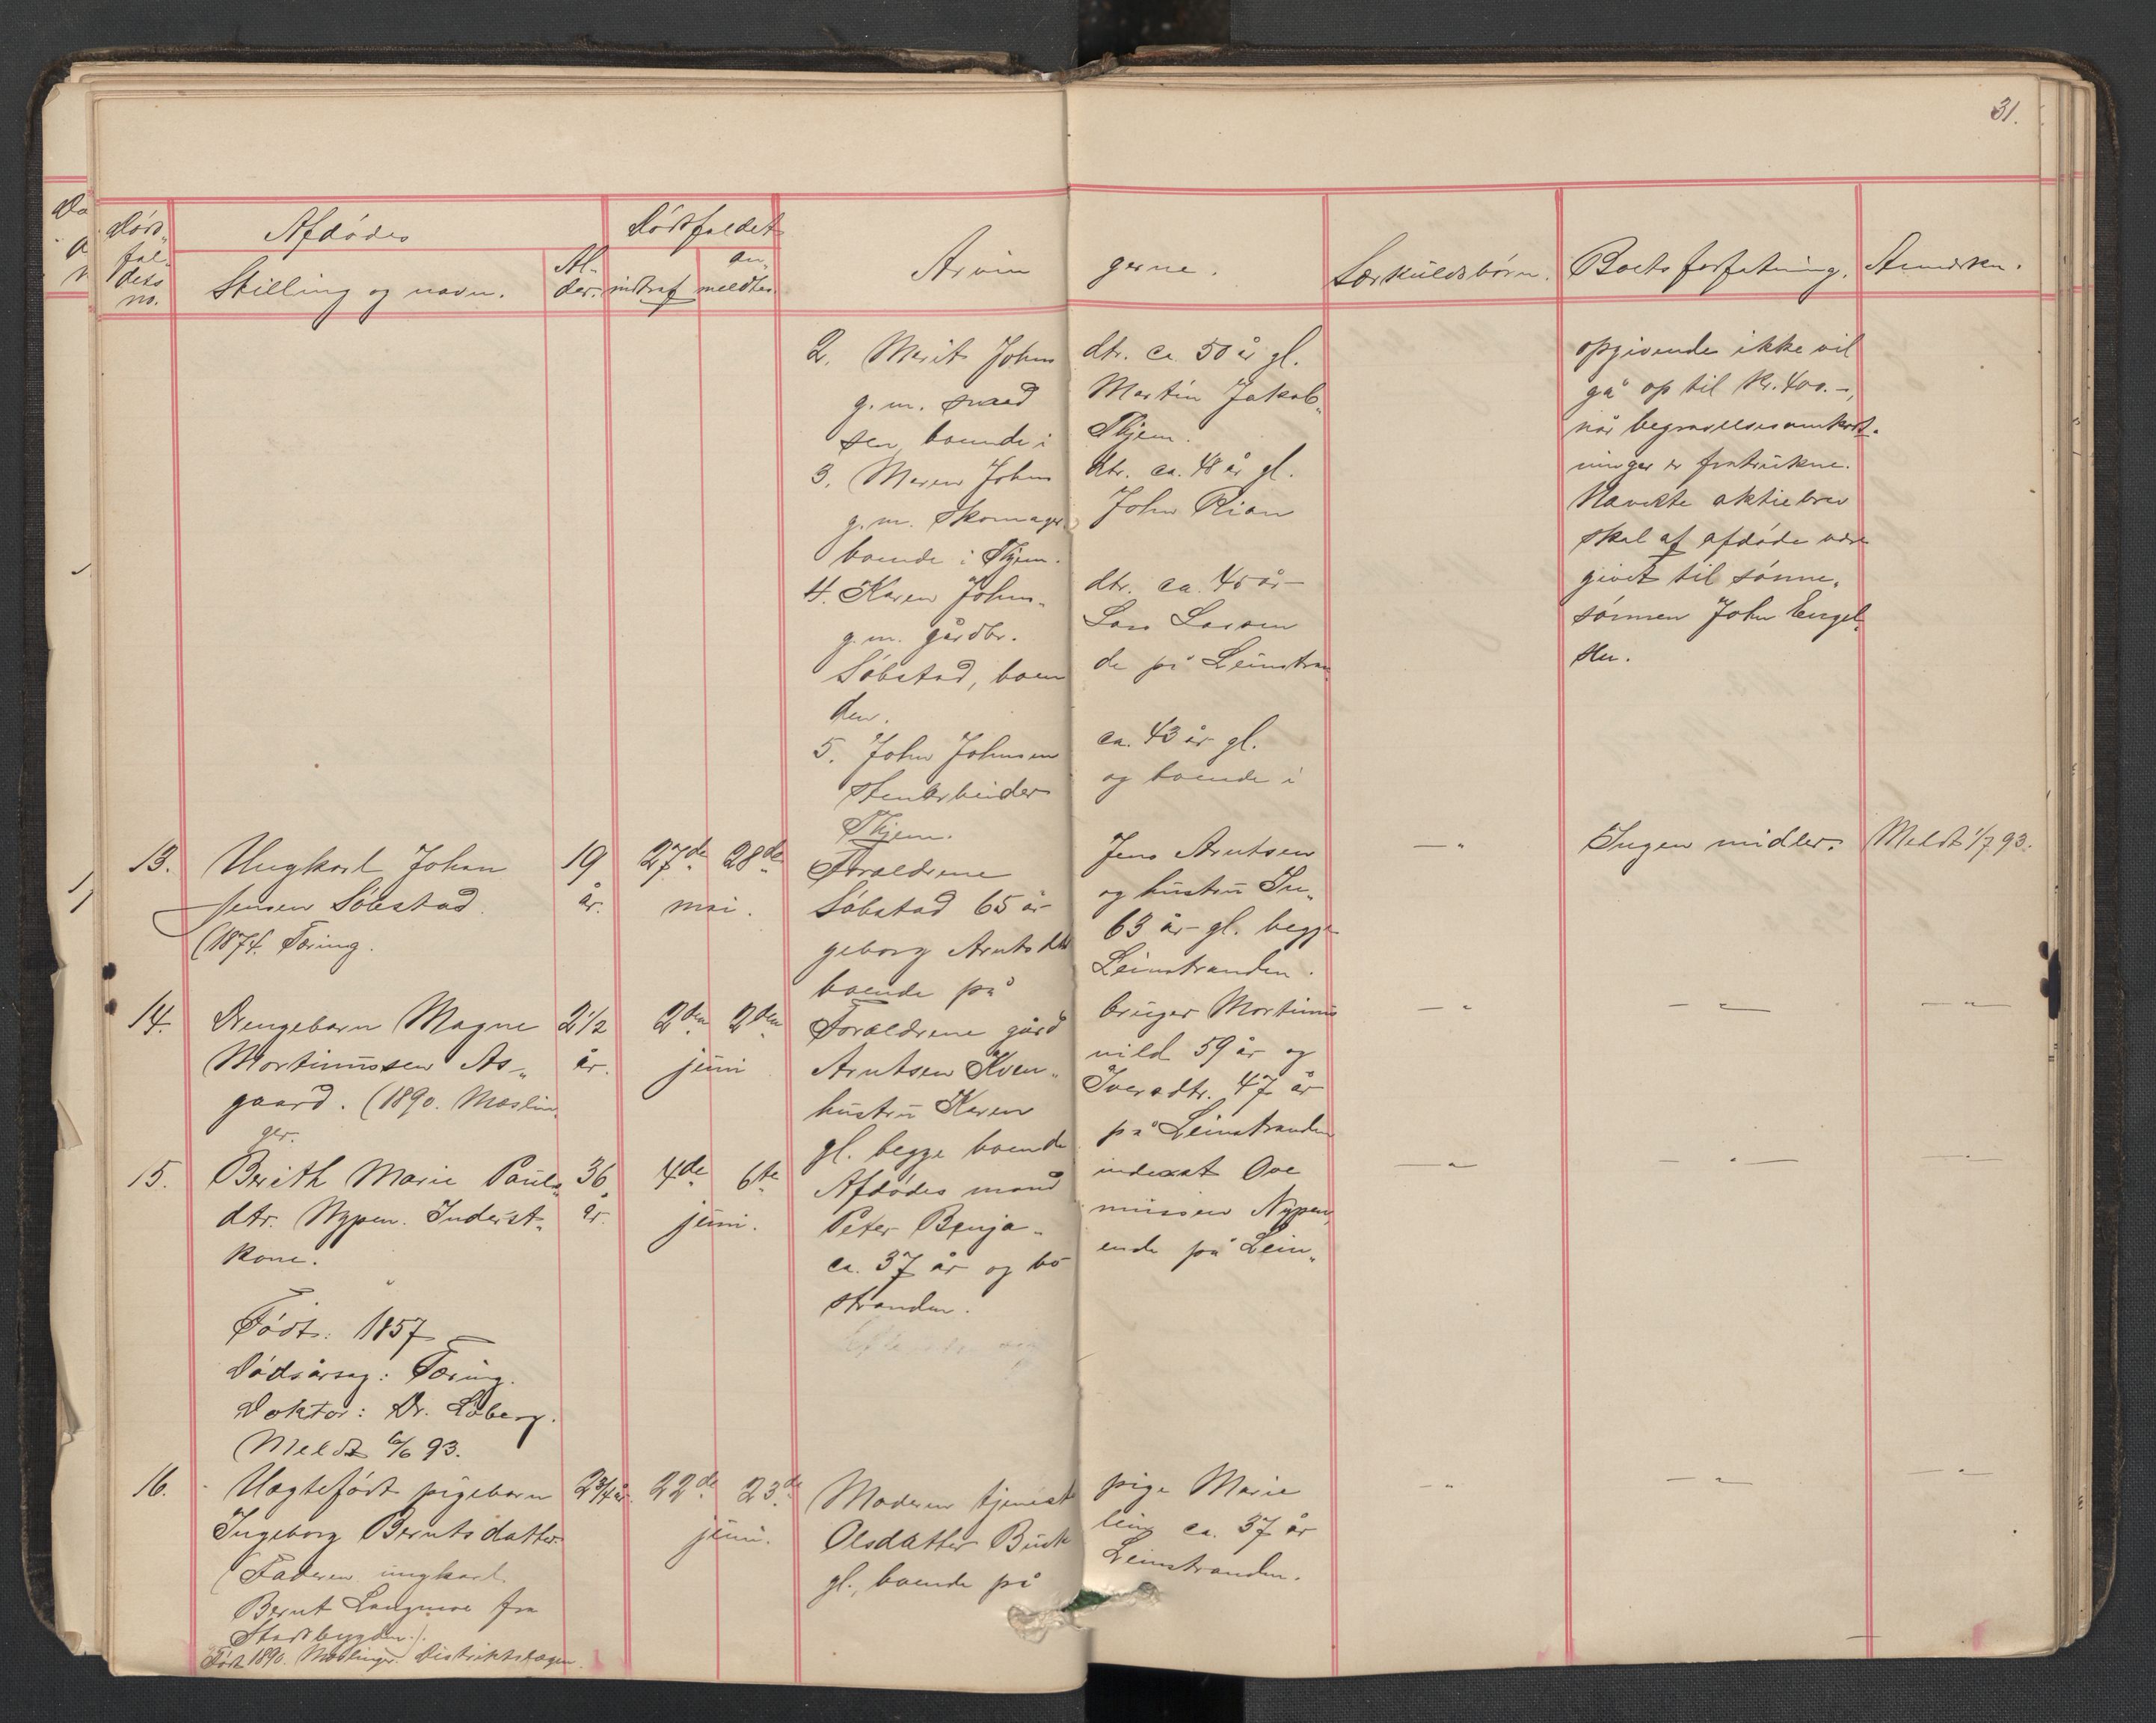 31.
Døds-
fal-
dets
no.
Afdødes
Stilling og navn.
Al-
der.
Dødsfaldet
indtraf
an-
meldtes.
Arvin gerne.
Særkuldsbørn.
Boets forfatning.
Anmærkn.
2. Marit Johns dtr. ca 50 år gl.
g.m. smed Martin Jakob„
sen, boende i Thjem.
3. Maren Johns dtr. ca. 48 år gl.
g.m. skomager John Rian
boende i Thjem.
4. Karen Johns„ dtr. ca. 45 år
g.m. gårdbr. Lars Larsen
Søbstad, boen de på Leinstran„
den.
5. John Johnsen ca. 43 år gl.
stenarbeider og boende i
Thjem.
opgivende ikke vil
gå op til Kr. 400.-,
når begravelsesomkost„
ninger er fratrukne.
Nævnte aktiebrev
skal af afdøde være
givet til sønne„
sønnen John Engel„
sen.
13. Ungkarl Johan 19 27de 28de Forældrene Jens Arntsen — „ Ingen midler. Meldt 1/7 93.
Jensen Søbstad. år. mai. Søbstad 65 år og hustru In„
(1874. Tæring. geborg Arntsdtr 63 år gl. begge
boende på Leinstranden.
14. Drengebarn Magne 2 1/2 2den 2den Forældrene gård bruger Martinus — „ — „ — — „ —
Martinussen As„ år. juni Arntsen Kven„ vild 59 år og
gaard. (1890. Mæslin„ hustru Karen Iversdtr. 47 år
ger. gl. begge boende på Leinstranden
15. Berith Marie Pauls„ 36 4de 6te Afdødes mand inderst Ove — „ — — „ — — „ —
dtr. Nypen. Inderst„ år. juni. Peter Benja„ minsen Nypen,
kone. ca. 37 år og bo ende på Lein„
stranden.
Født: 1857
Dødsårsag: Tæring.
Doktor: Dr. Løberg.
Meldt 6/6 93.
16. Uægtefødt pigebarn 2 3/4 år. 22de 23de Moderen tjeneste pige Marie — „ — „ — — „ —
Ingeborg Berntsdatter juni. Olsdatter Busk lein ca. 37 år
(Faderen ungkarl gl., boende på Leinstranden.
Bernt Langmoe fra
Stadsbygden.).
Født 1890. Mæslinger. Distriktslægen.